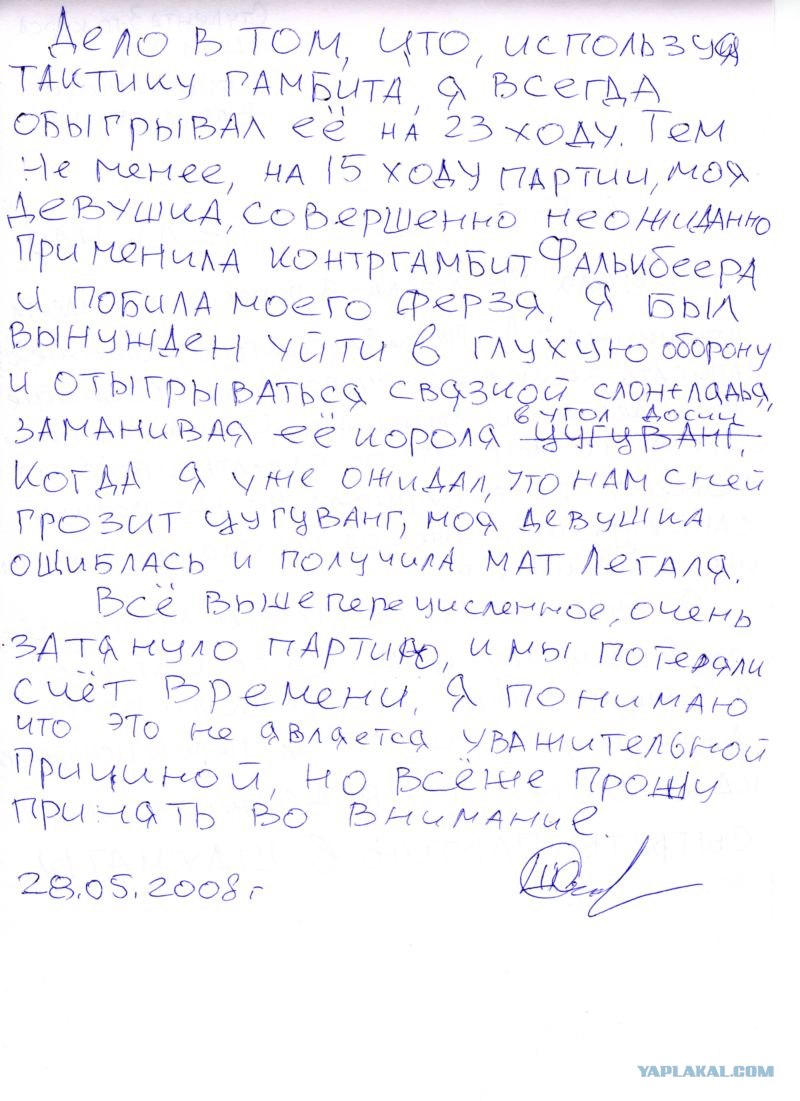 Дело в том, что, используя
тактику гамбита, я всегда
обыгрывал её на 23 ходу. Тем
не менее, на 15 ходу партии, моя
девушка, совершенно неожиданно
применила контргамбит Фалькбеера
и побила моего ферзя. Я был
вынужден уйти в глухую оборону
и отыгрываться связкой слон+ладья,
в угол доски
заманивая её короля цугуванг.
Когда я уже ожидал, что нам с ней
грозит цугуванг, моя девушка
ошиблась и получила мат Легаля.
Всё вышеперечисленное, очень
затянуло партию, и мы потеряли
счёт времени. Я понимаю
что это не является уважительной
причиной, но всёже прошу
принять во внимание.
28.05.2008г
YAPLAKAL.COM